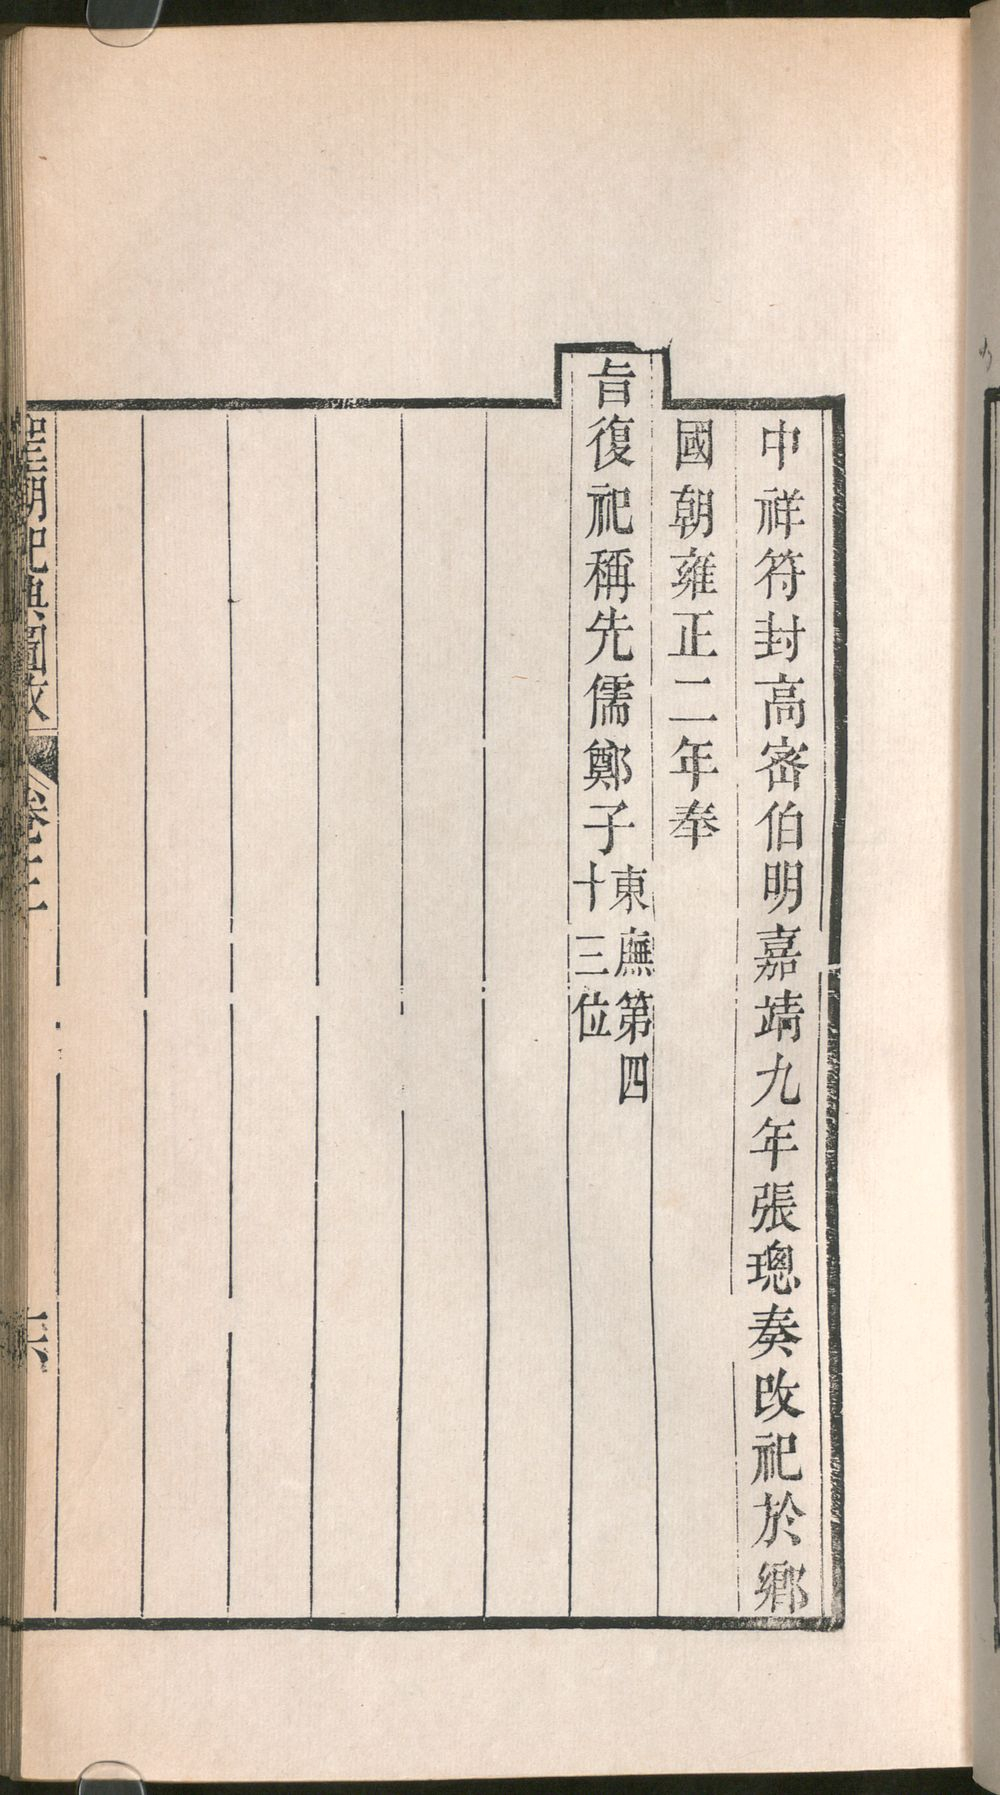 中祥符封高密伯明嘉靖九年張璁奏改祀於鄉
國朝雍正二年奉
旨復祀稱先儒鄭子東廡第四
十三位
聖朝祀典圖攷
卷三
六